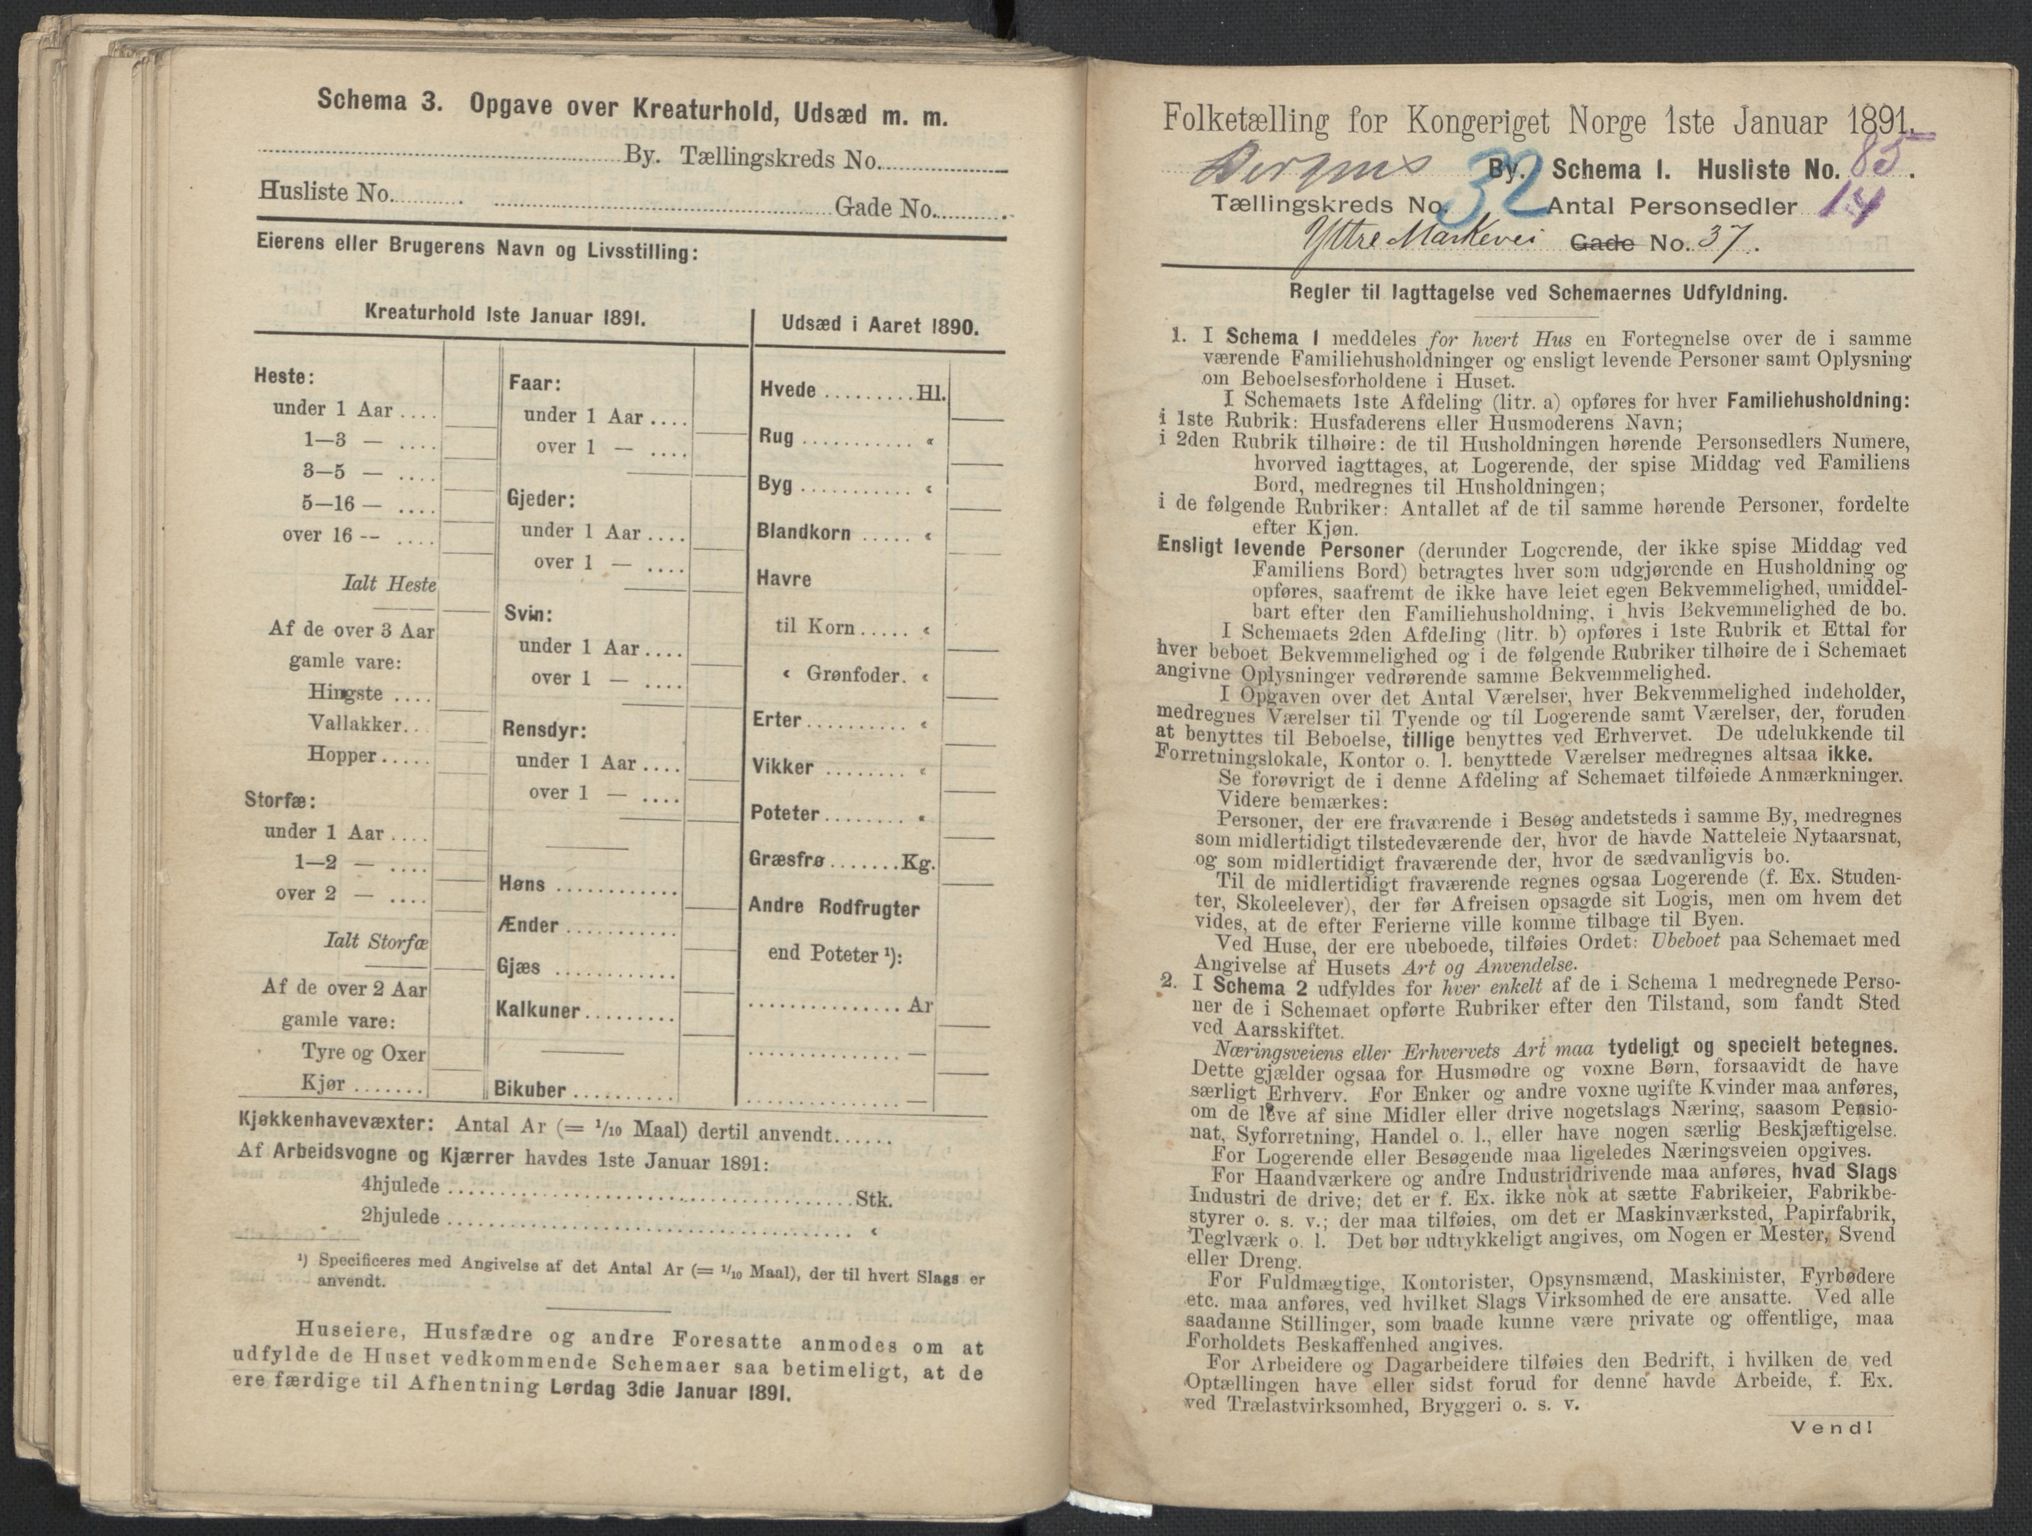 Schema 3. Opgave over Kreaturhold, Udsæd m. m.
By. Tællingskreds No.
Husliste No. Gade No.
Eierens eller Brugerens Navn og Livsstilling:
Kreaturhold 1ste Januar 1891.
Heste:
under 1 Aar ....
1—3 — ....
3—5 — ....
5—16 — ....
over 16 -- ....
Ialt Heste
Af de over 3 Aar
gamle vare:
Hingste ....
Vallakker...
Hopper.....
Storfæ:
under 1 Aar ....
1—2 — ....
over 2 — ....
Ialt Storfæ
Af de over 2 Aar
gamle vare:
Tyre og Oxer
Kjør .......
Faar:
under 1 Aar ....
over 1 — ....
Gjeder:
under 1 Aar ....
over 1 — ....
Svin:
under 1 Aar....
over 1 — ....
Rensdyr:
under 1 Aar ....
over 1 — ....
Høns ............
Ænder ...........
Gjæs ............
Kalkuner.........
Bikuber ..........
Udsæd i Aaret 1890.
Hvede .........Hl.
Rug ........... «
Byg ........... «
Blandkorn ..... «
Havre
til Korn..... «
« Grønfoder. «
Erter.......... «
Vikker ........ «
Poteter........ «
Græsfrø.......Kg.
Andre Rodfrugter
end Poteter ¹):
.............. Ar
.............. —
.............. —
Kjøkkenhavevæxter: Antal Ar (= 1/10 Maal) dertil anvendt......
Af Arbeidsvogne og Kjærrer havdes 1ste Januar 1891:
4hjulede ........................................Stk.
2hjulede ........................................ «
¹) Specificeres med Angivelse af det Antal Ar (= 1/10 Maal), der til hvert Slags er
anvendt.
Huseiere, Husfædre og andre Foresatte anmodes om at
udfylde de Huset vedkommende Schemaer saa betimeligt, at de
ere færdige til Afhentning Lørdag 3die Januar 1891.
Folketælling for Kongeriget Norge 1ste Januar 1891.
Bergens By. Schema 1. Husliste No. 85.
Tællingskreds No. 32 Antal Personsedler 14
Yttre Markevei Gade No. 37.
Regler til Iagttagelse ved Schemaernes Udfyldning.
1. I Schema 1 meddeles for hvert Hus en Fortegnelse over de i samme
værende Familiehusholdninger og ensligt levende Personer samt Oplysning
om Beboelsesforholdene i Huset.
I Schemaets 1ste Afdeling (litr. a) opføres for hver Familiehusholdning:
i 1ste Rubrik: Husfaderens eller Husmoderens Navn;
i 2den Rubrik tilhøire: de til Husholdningen hørende Personsedlers Numere,
hvorved iagttages, at Logerende, der spise Middag ved Familiens
Bord, medregnes til Husholdningen;
i de følgende Rubriker: Antallet af de til samme hørende Personer, fordelte
efter Kjøn.
Ensligt levende Personer (derunder Logerende, der ikke spise Middag ved
Familiens Bord) betragtes hver som udgjørende en Husholdning og
opføres, saafremt de ikke have leiet egen Bekvemmelighed, umiddel-
bart efter den Familiehusholdning, i hvis Bekvemmelighed de bo.
I Schemaets 2den Afdeling (litr. b) opføres i 1ste Rubrik et Ettal for
hver beboet Bekvemmelighed og i de følgende Rubriker tilhøire de i Schemaet
angivne Oplysninger vedrørende samme Bekvemmelighed.
I Opgaven over det Antal Værelser, hver Bekvemmelighed indeholder,
medregnes Værelser til Tyende og til Logerende samt Værelser, der, foruden
at benyttes til Beboelse, tillige benyttes ved Erhvervet. De udelukkende til
Forretningslokale, Kontor o. l. benyttede Værelser medregnes altsaa ikke.
Se forøvrigt de i denne Afdeling af Schemaet tilføiede Anmærkninger.
Videre bemærkes:
Personer, der ere fraværende i Besøg andetsteds i samme By, medregnes
som midlertidigt tilstedeværende der, hvor de havde Natteleie Nytaarsnat,
og som midlertidigt fraværende der, hvor de sædvanligvis bo.
Til de midlertidigt fraværende regnes ogsaa Logerende (f. Ex. Studen-
ter, Skoleelever), der før Afreisen opsagde sit Logis, men om hvem det
vides, at de efter Ferierne ville komme tilbage til Byen.
Ved Huse, der ere ubeboede, tilføies Ordet: Ubeboet paa Schemaet med
Angivelse af Husets Art og Anvendelse.
2. I Schema 2 udfyldes for hver enkelt af de i Schema 1 medregnede Perso-
ner de i Schemaet opførte Rubriker efter den Tilstand, som fandt Sted
ved Aarsskiftet.
Næringsveiens eller Erhvervets Art maa tydeligt og specielt betegnes.
Dette gjælder ogsaa for Husmødre og voxne Børn, forsaavidt de have
særligt Erhverv. For Enker og andre voxne ugifte Kvinder maa anføres,
om de leve af sine Midler eller drive nogetslags Næring, saasom Pensio-
nat, Syforretning, Handel o. l., eller have nogen særlig Beskjæftigelse.
For Logerende eller Besøgende maa ligeledes Næringsveien opgives.
For Haandværkere og andre Industridrivende maa anføres, hvad Slags
Industri de drive; det er f. Ex. ikke nok at sætte Fabrikeier, Fabrikbe-
styrer o. s. v.; der maa tilføies, om det er Maskinværksted, Papirfabrik,
Teglværk o. l. Det bør udtrykkeligt angives, om Nogen er Mester, Svend
eller Dreng.
For Fuldmægtige, Kontorister, Opsynsmænd, Maskinister, Fyrbødere
etc. maa anføres, ved hvilket Slags Virksomhed de ere ansatte. Ved alle
saadanne Stillinger, som baade kunne være private og offentlige, maa
Forholdets Beskaffenhed angives.
For Arbeidere og Dagarbeidere tilføies den Bedrift, i hvilken de ved
Optællingen have eller sidst forud for denne havde Arbeide, f. Ex.
ved Trælastvirksomhed, Bryggeri o. s. v.
Vend!